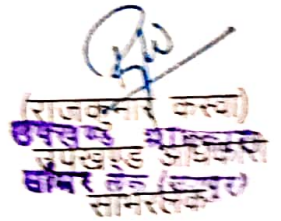 (राजकुमार कस्वा)
उपखण्ड
उपखण्ड अधिकारी
सांभर लेक (जयपुर)
सांभरलेक